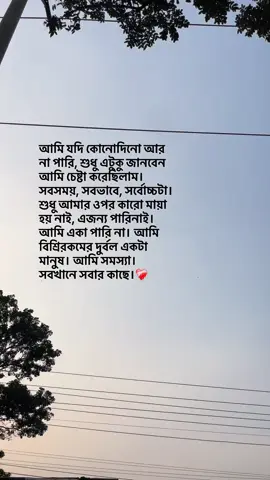 আমি যদি কোনোদিনো আর
না পারি, শুধু এটুকু জানবেন
আমি চেষ্টা করেছিলাম।
সবসময়, সবভাবে, সর্বোচ্চটা।
শুধু আমার ওপর কারো মায়া
হয় নাই, এজন্য পারিনাই।
আমি একা পারি না। আমি
বিশ্রিরকমের দুর্বল একটা
মানুষ। আমি সমস্যা।
সবখানে সবার কাছে।❤️‍🩹